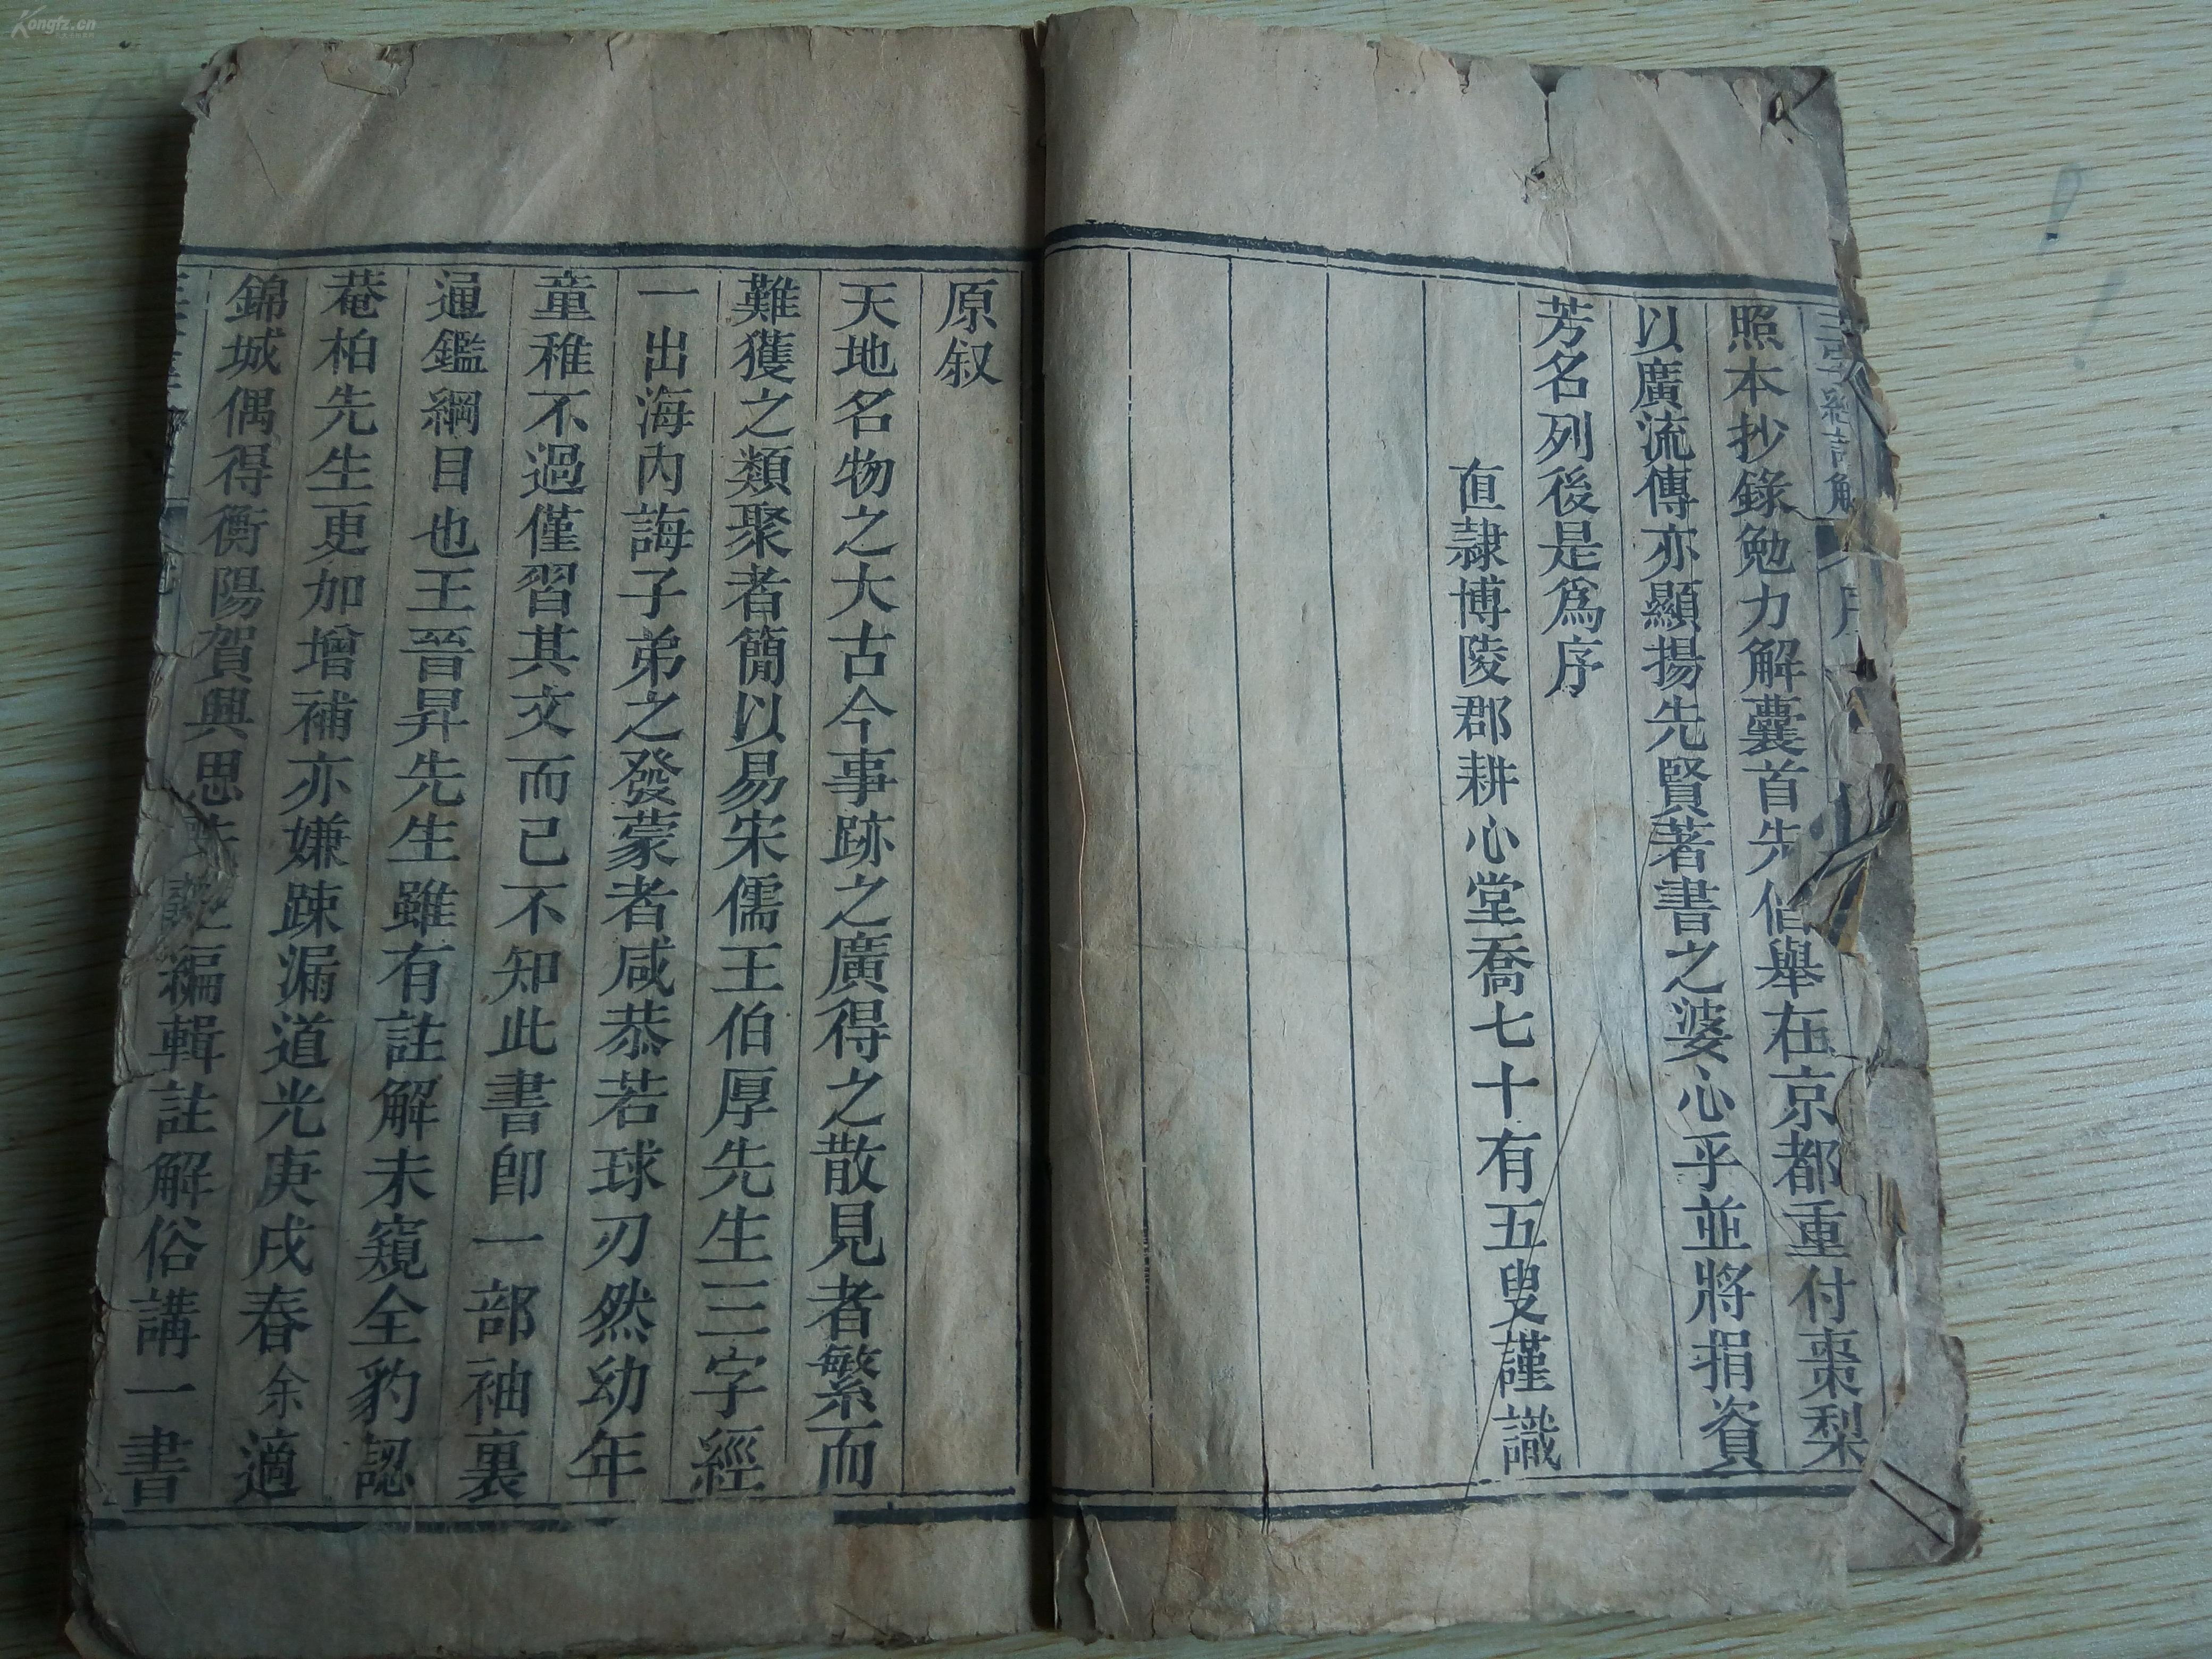 照本抄錄勉力解囊首先倡舉在京都重付棗梨
以廣流傳亦顯揚先賢著書之婆心乎並將捐資
芳名列後是爲序
直隷博陵郡耕心堂喬七十有五叟謹識
原叙
天地名物之大古今事跡之廣得之散見者繁而
難獲之類聚者簡以易宋儒王伯厚先生三字經
一出海內誨子弟之發蒙者咸恭若球刃然幼年
童稚不過僅習其文而己不知此書卽一部袖裏
通鑑綱目也王晉昇先生雖有註解未窺全豹認
菴柏先生更加增補亦嫌踈漏道光庚戌春余適
錦城偶得衡陽賀興思編輯註解俗講一書
Kongfz.cn